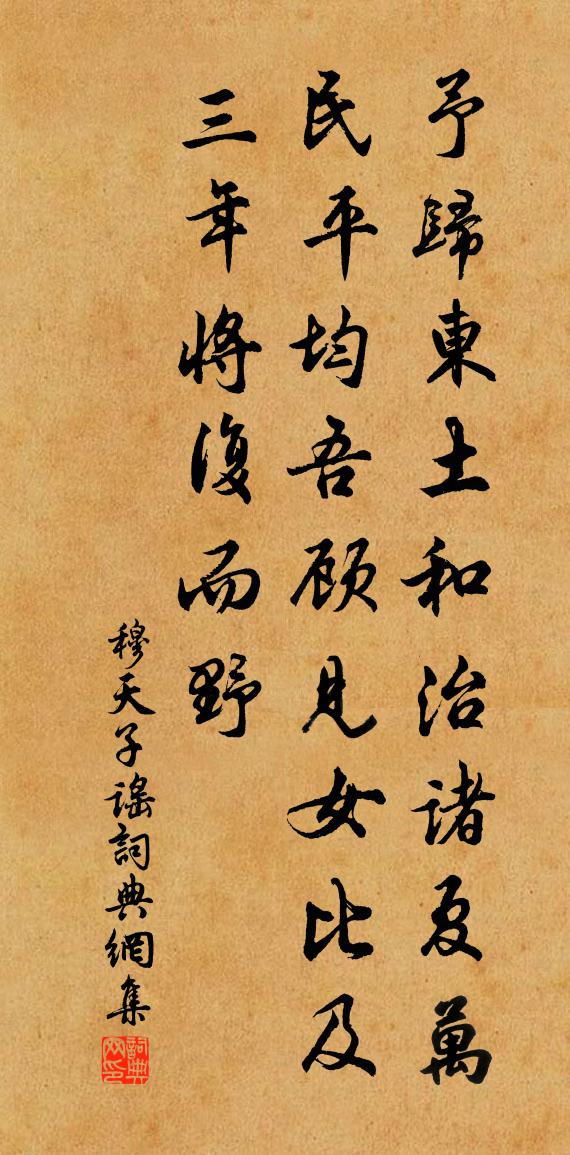 予歸東土和治諸夏萬
民平均吾顾見女比及
三年將復而野
穆天子謠詞典網集
詞典網印